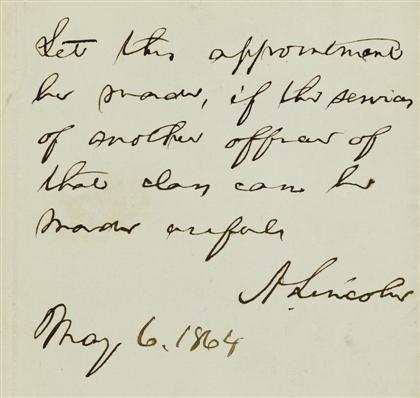 Let this appointment
be made, if the services
of another officer of
that class can be
made useful
A. Lincoln
May 6, 1864